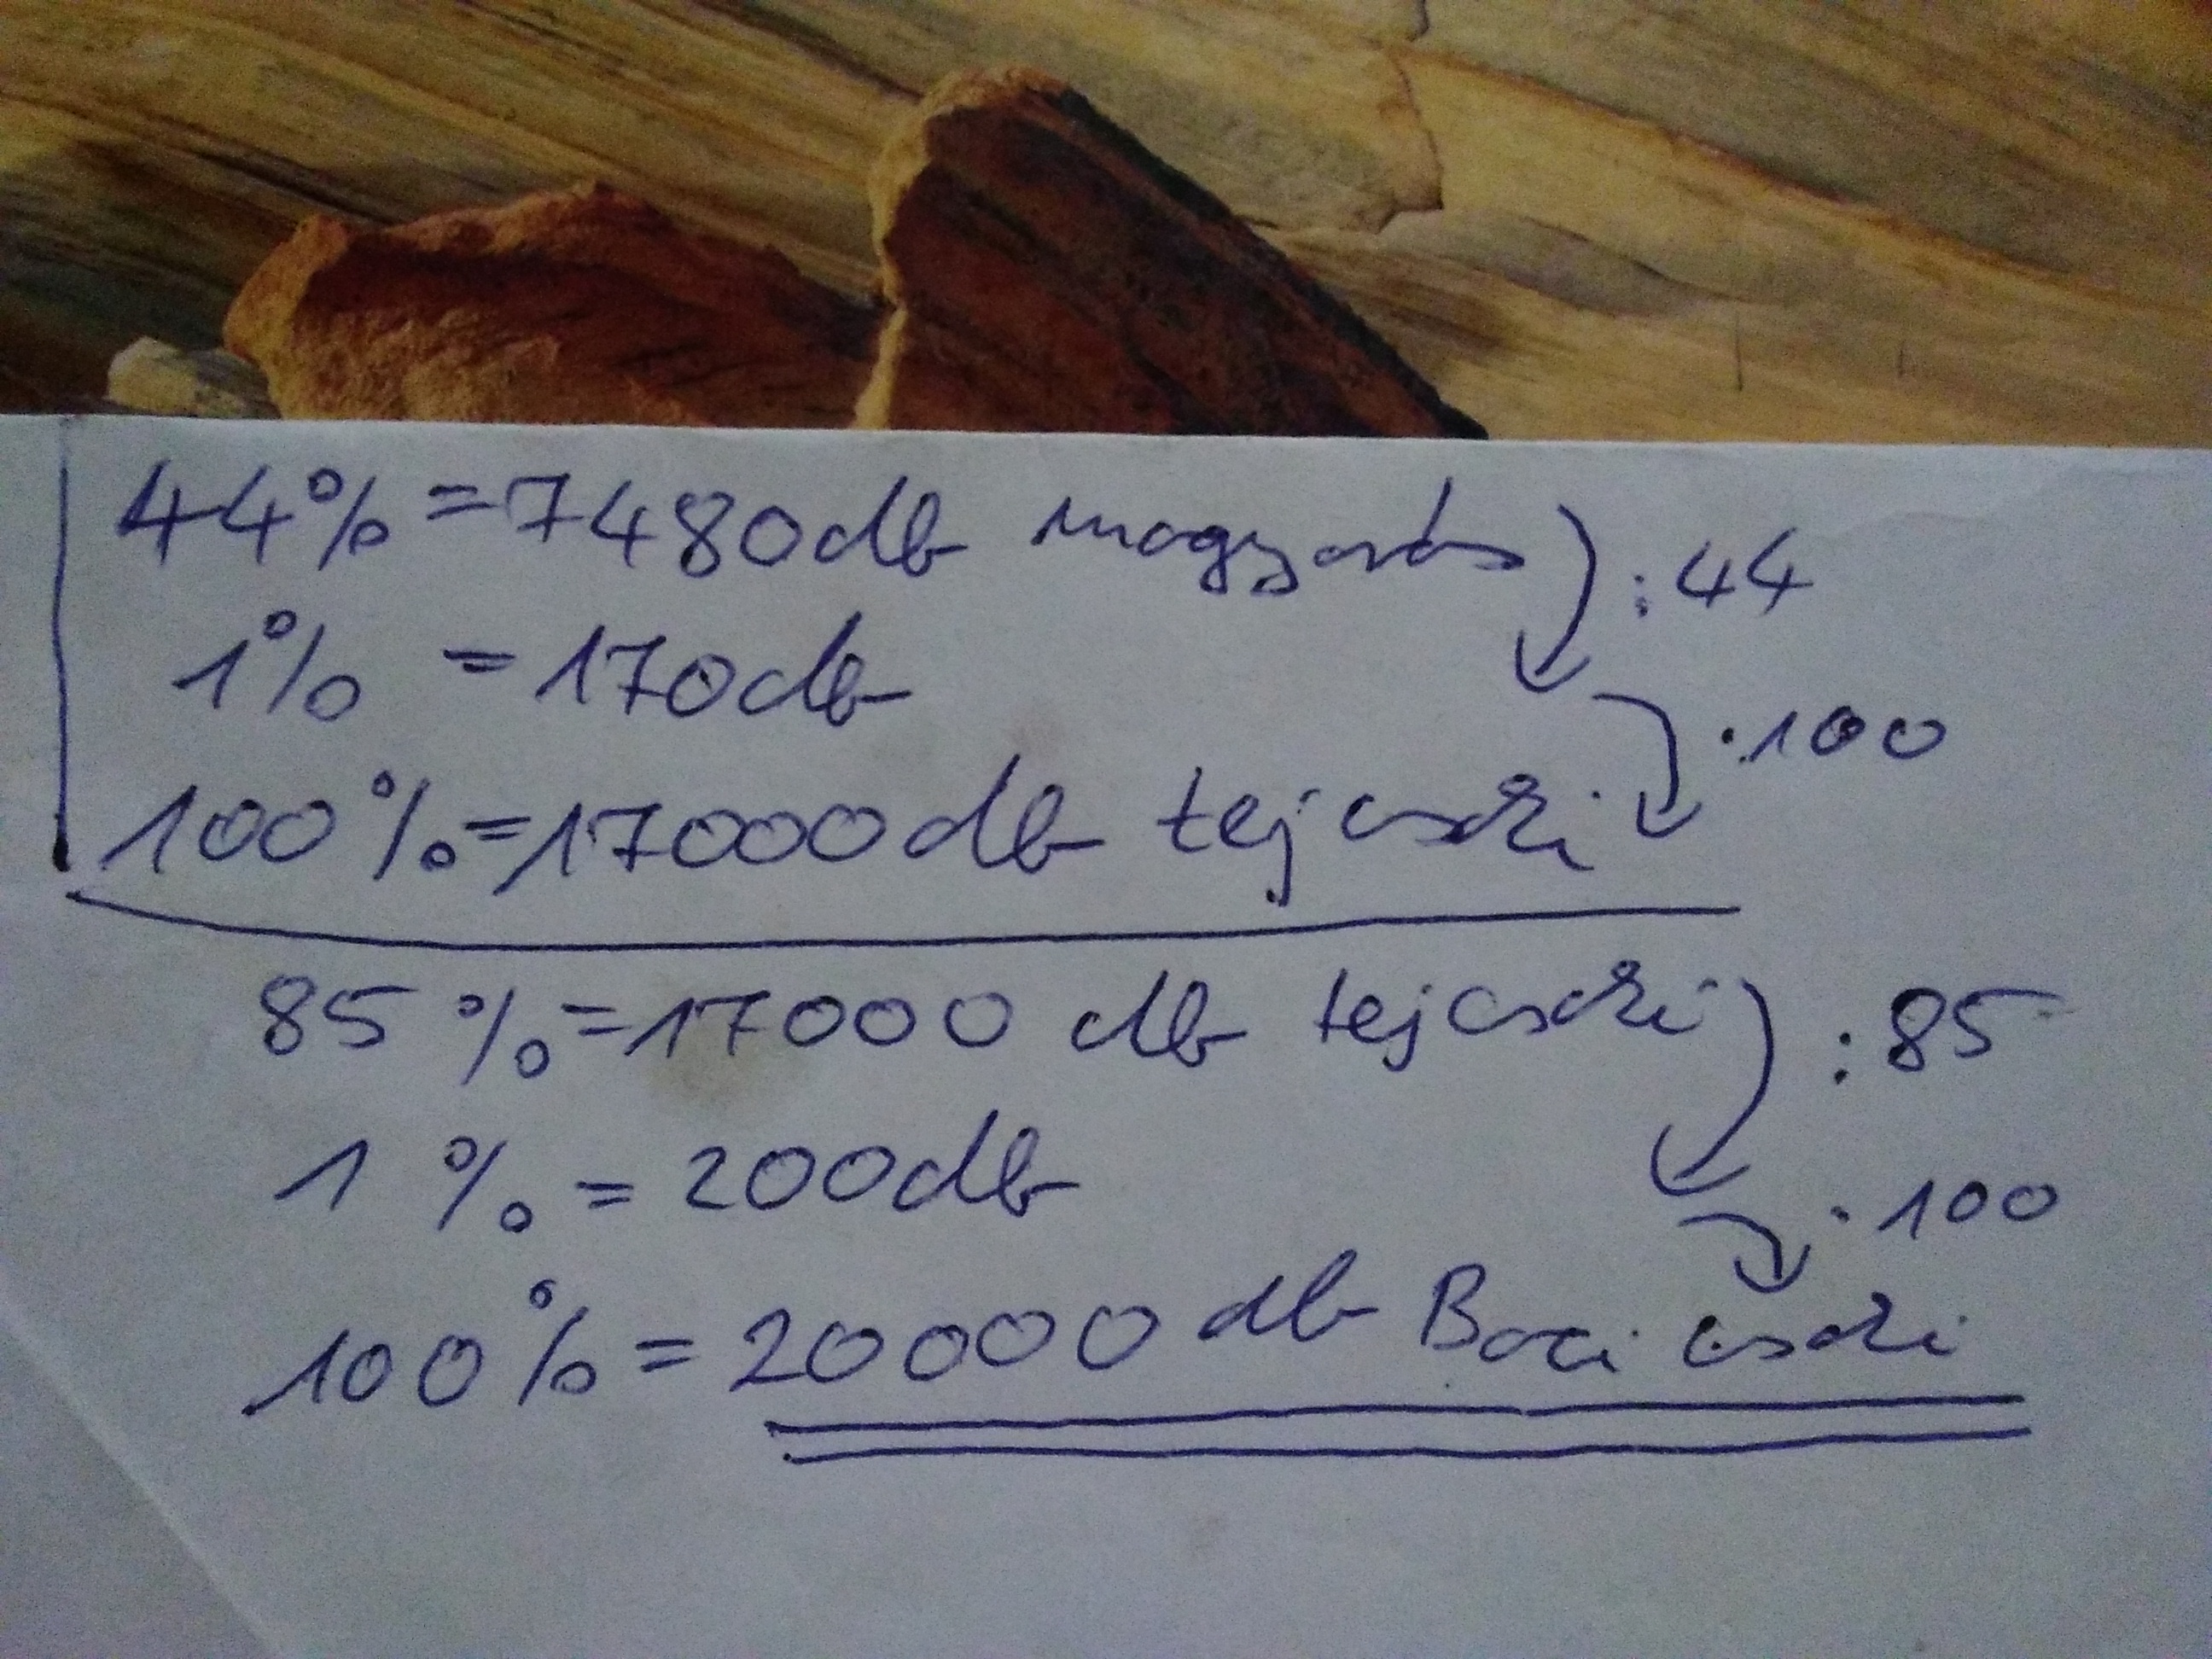 44% = 7480 db mogyorós : 44
1% = 170 db
· 100
100% = 17000 db tejcsoki
85% = 17000 db tejcsoki : 85
1% = 200 db
· 100
100% = 20000 db Boci csoki